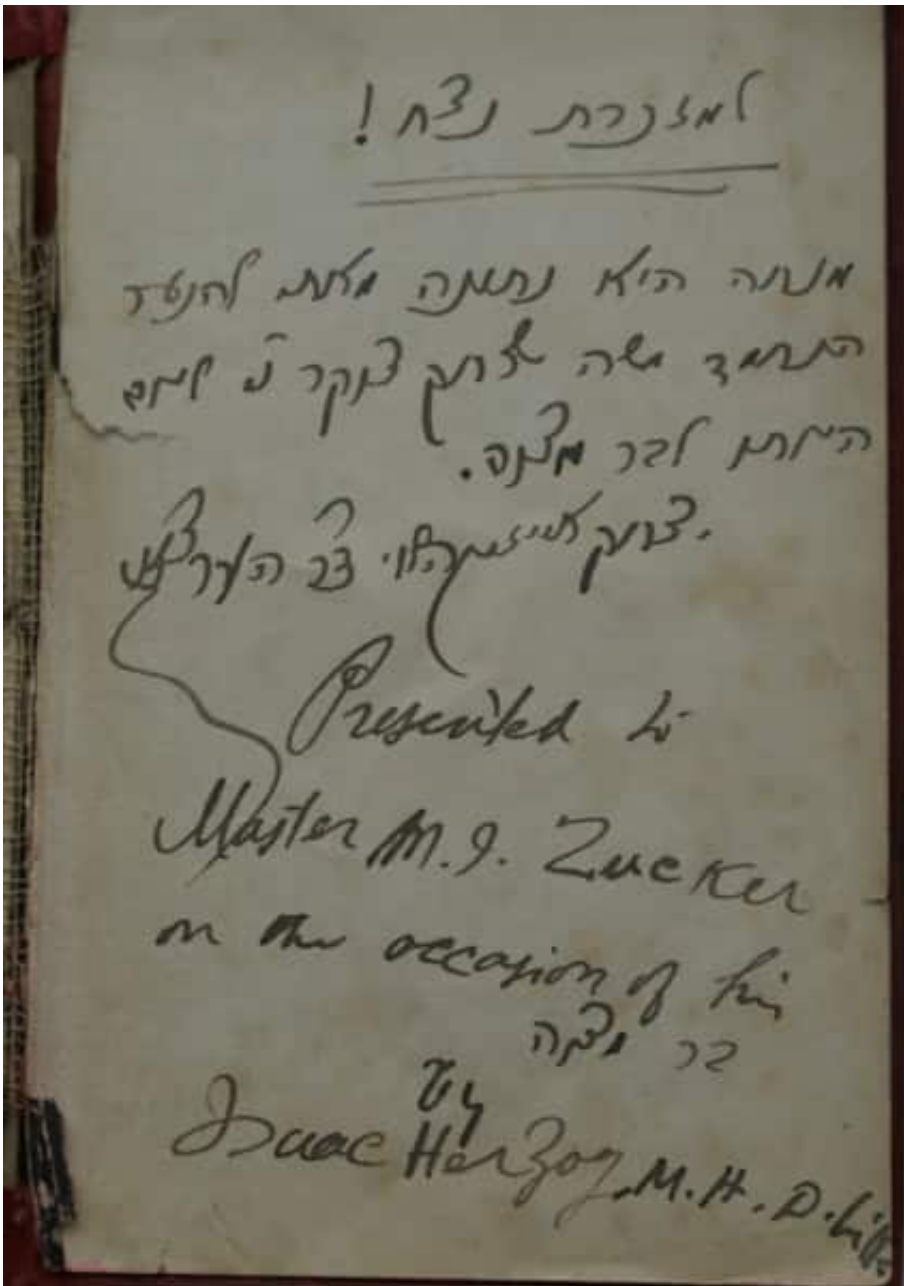 למזכרת נצח!
מנחה היא נתונה מאת להנער
הנחמד משה יצחק צוקר נ"י ליום
היותו לבר מצוה.
יצחק אייזיק הלוי
Presented to
Master M. I. Zucker
on the occasion of his
בר מצוה
by
Isaac Herzog, M.A. D.Litt